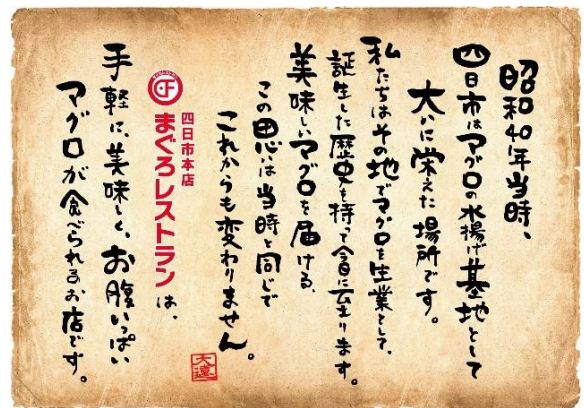 昭和40年当時、
四日市はマグロの水揚げ基地として
大いに栄えた場所です。
私たちはその地でマグロを生業として、
誕生した歴史を持って今日に至ります。
美味しいマグロを届ける、
この思いは当時と同じで
これからも変わりません。
大遠
四日市本店
まぐろレストランは、
手軽に、美味しく、お腹いっぱい
マグロが食べられるお店です。